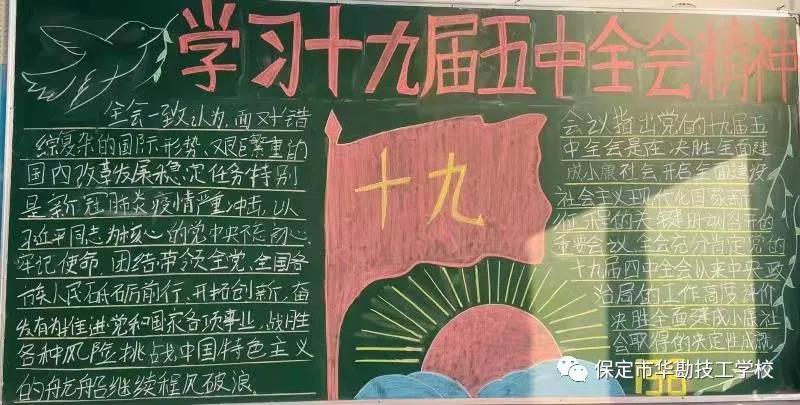 学习十九届五中全会精神
全会一致认为,面对错
综复杂的国际形势、艰巨繁重的
国内改革发展稳定任务特别
是新冠肺炎疫情严重冲击,以
习近平同志为核心的党中央不忘初心、
牢记使命,团结带领全党、全国各
族人民砥砺前行、开拓创新,奋
发有为推进党和国家各项事业,战胜
各种风险挑战,中国特色主义
的航船继续程风破浪。
十九
会议指出党的十九届五
中全会是在决胜全面建
成小康社会、开启全面建设
社会主义现代化国家新
征程的关键时刻召开的
重要会议,全会充分肯定党的
十九届四中全会以来中央政
治局的工作高度评价
决胜全面建成小康社
会取得的决定性成就
保定市华勘技工学校